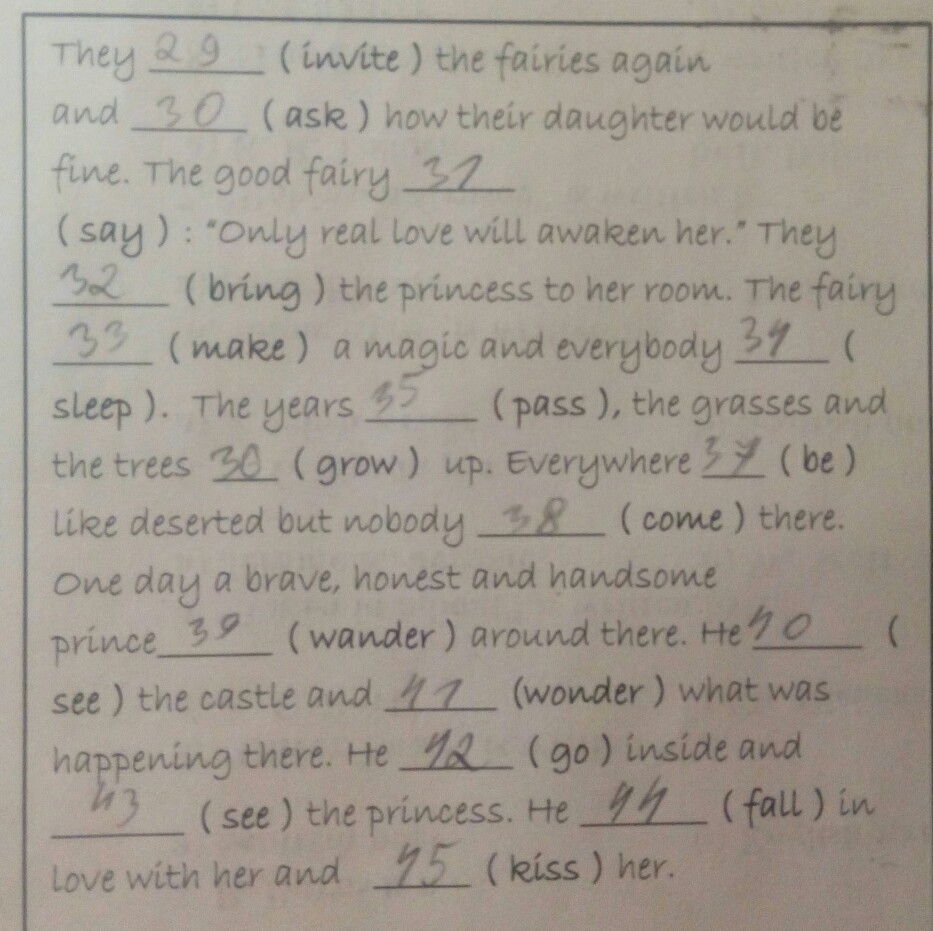 They 29 ( invite ) the fairies again
and 30 ( ask ) how their daughter would be
fine. The good fairy 31
( say ) : "Only real love will awaken her." They
32 ( bring ) the princess to her room. The fairy
33 ( make ) a magic and everybody 34 (
sleep ). The years 35 ( pass ), the grasses and
the trees 36 ( grow ) up. Everywhere 37 ( be )
like deserted but nobody 38 ( come ) there.
One day a brave, honest and handsome
prince 39 ( wander ) around there. He 40 (
see ) the castle and 41 (wonder ) what was
happening there. He 42 ( go ) inside and
43 ( see ) the princess. He 44 ( fall ) in
love with her and 45 ( kiss ) her.